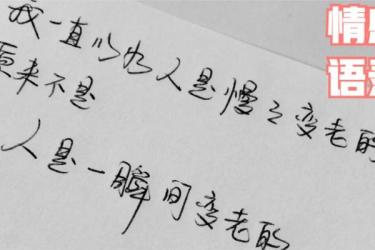 情感
语录
我一直以为人是慢々变老的
原来不是
人是一瞬间变老的